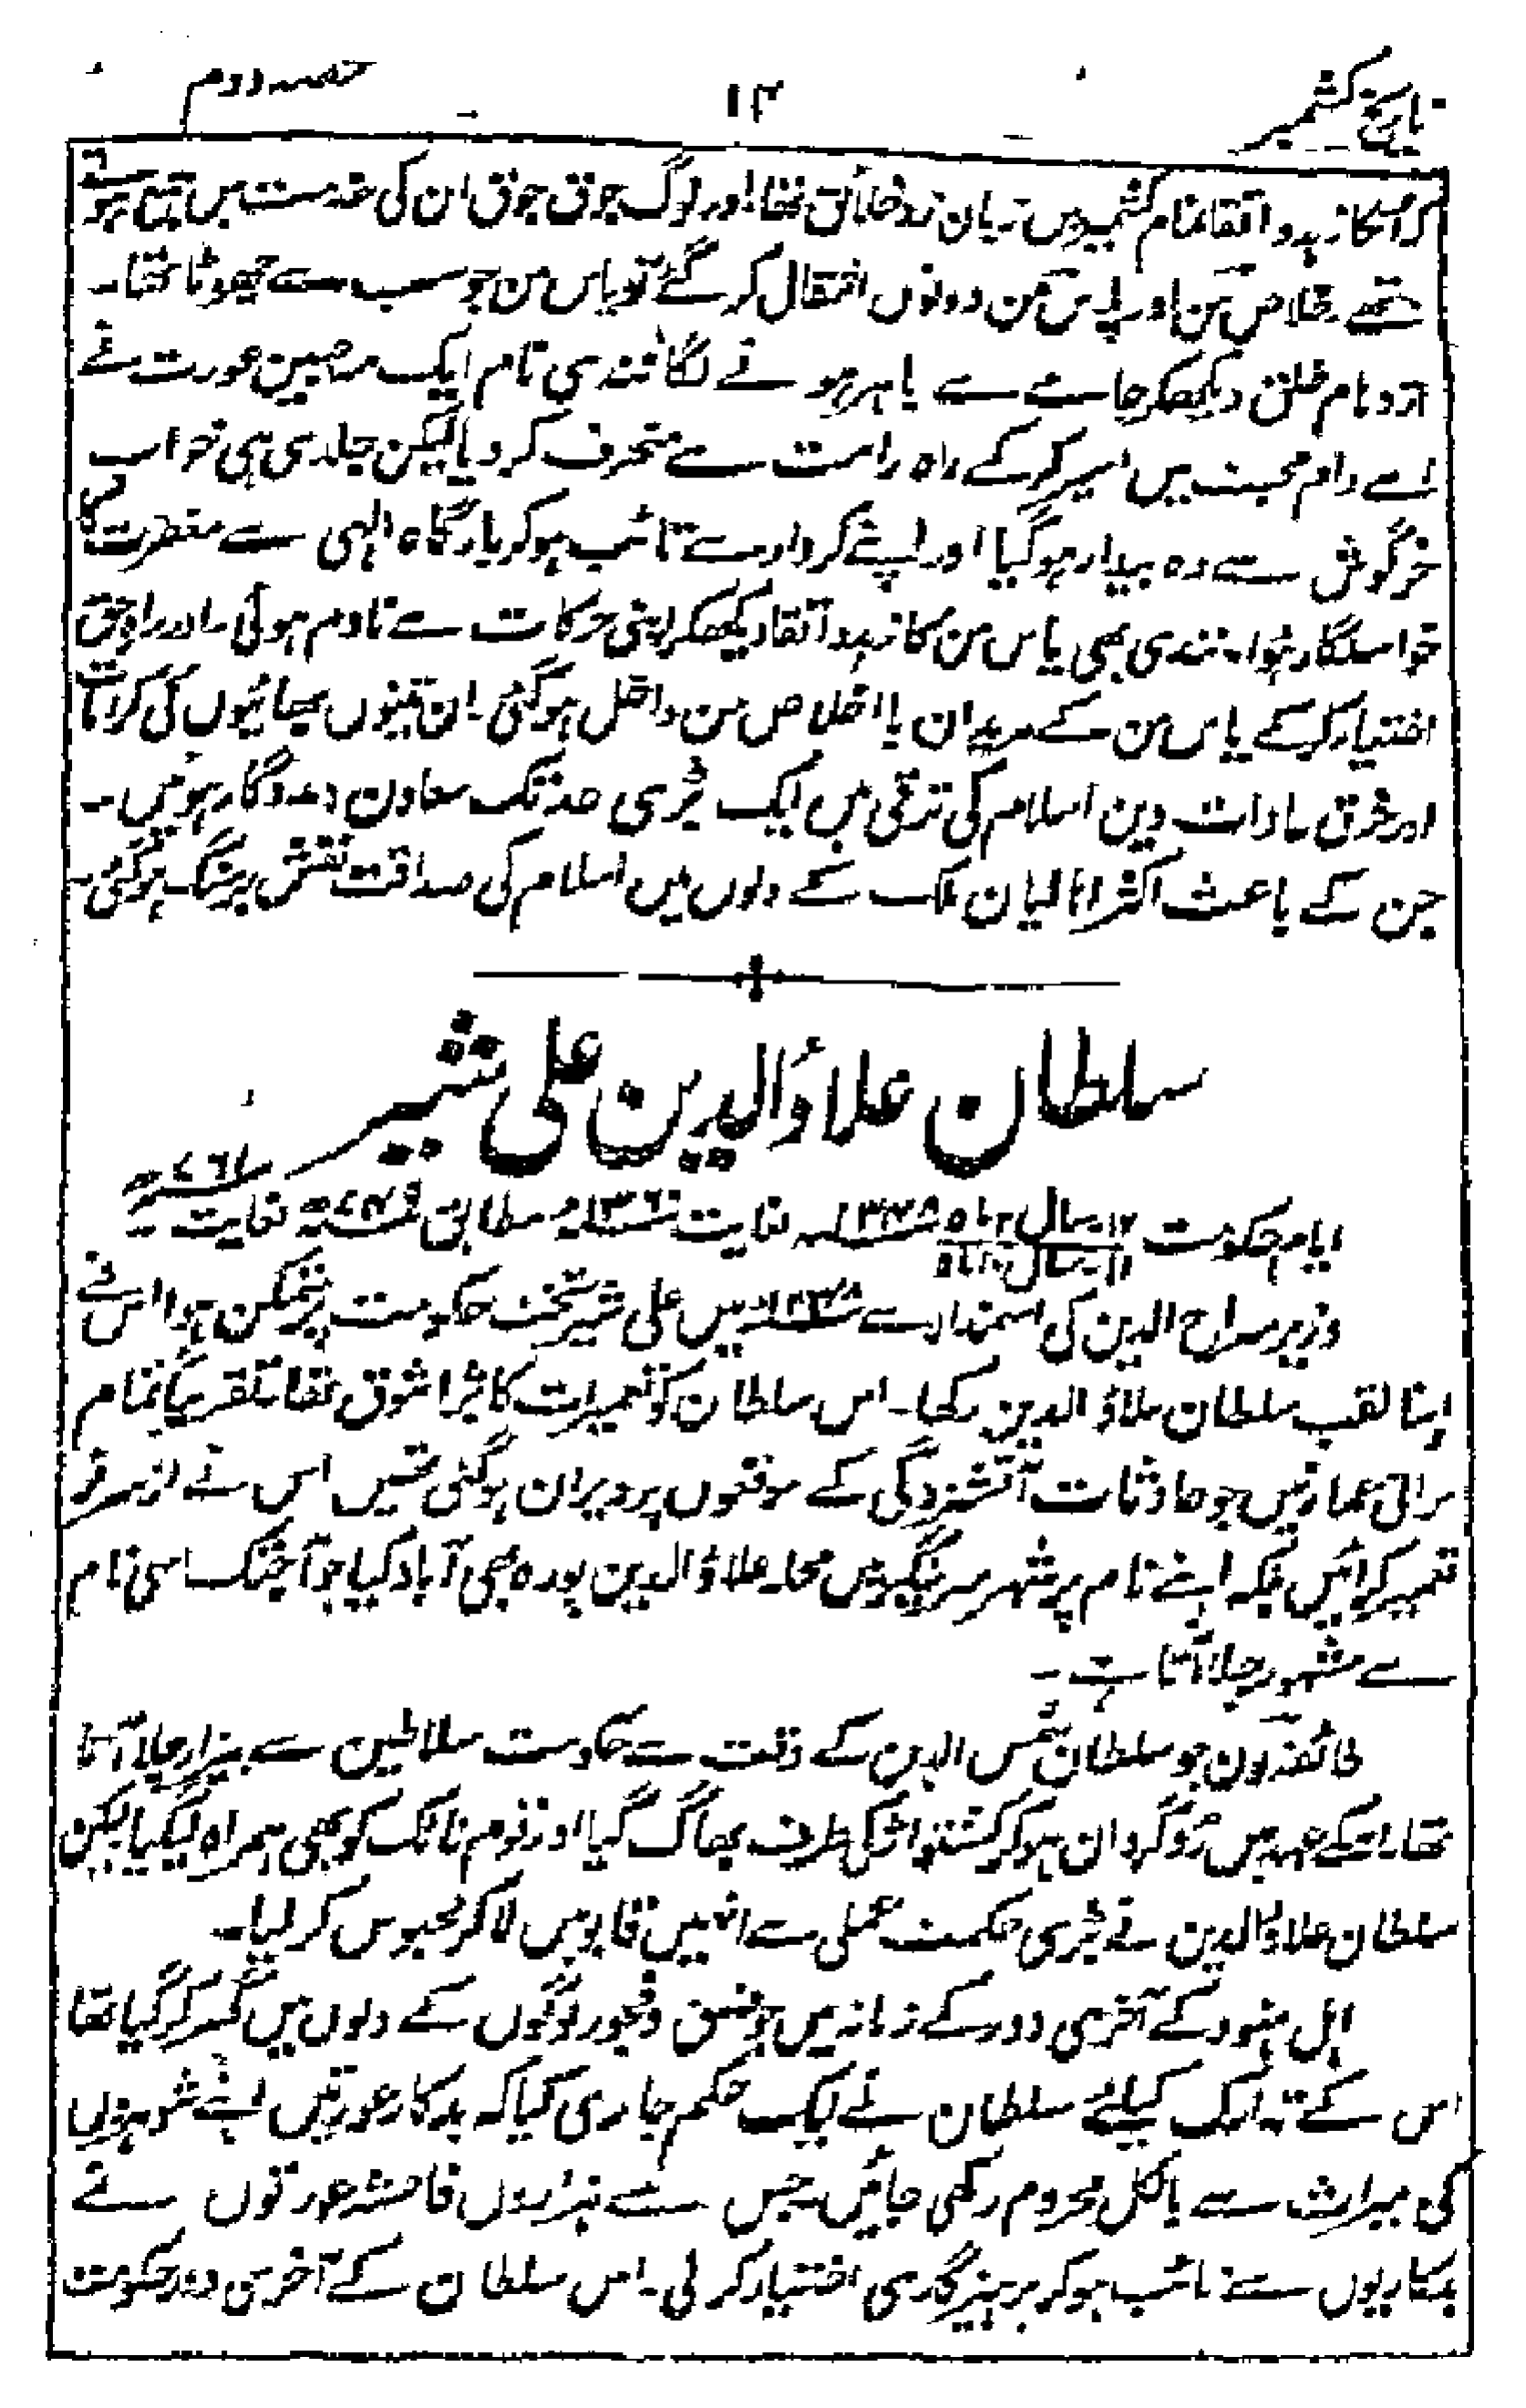 تاریخ کشمیر
۱۴
حصہ دوم
کہ اسکا زہد و اتقا تمام کشمیر میں زبان زد خلائق تھا اور لوگ جوق جوق ان کی خدمت میں آتے ہوتے
تھے خلاص من اور پلاس من دونوں انتقال کر گئے تو یاس من جو سب سے چھوٹا تھا۔
ازدہام خلق دیکھکر جامے سے باہر ہونے لگا نندی نام ایک مہ جبین عورت نے
اسے دام محبت میں اسیر کرکے راہ راست سے منحرف کر دیا لیکن جلدی ہی خواب
خرگوش سے وہ بیدار ہو گیا اور اپنے کردار سے تائب ہو کر بارگاہ الہی سے مغفرت کا
خواستگار ہوا۔ نندی بھی یاس من کا زہد و اتقا دیکھکر اپنی حرکات سے نادم ہوئی۔ اور راہ حق
اختیار کرکے یاس من کے مریدان با اخلاص میں داخل ہو گئی۔ ان تینوں بھائیوں کی کرامات
اور خرق عادات دین اسلام کی ترقی میں ایک بڑی حد تک معاون و مددگار ہوئیں۔
جن کے باعث اکثر اہالیان ملک کے دلوں میں اسلام کی صداقت نقش بر سنگ ہو گئی۔
سلطان علاؤالدین علی شیر
ایام حکومت ۱۲ سال ۲ ماہ ۱۳۴۸ء لغایت ۱۳۶۰ء مطابق ۷۴۹ھ لغایت ۷۶۱ھ۔
۱۱ سال ۱۰ ماہ
وزیر سراج الدین کی استمداد سے ۱۳۴۸ء میں علی شیر تخت حکومت پر متمکن ہوا اس نے
اپنا لقب سلطان علاؤ الدین رکھا۔ اس سلطان کو تعمیرات کا بڑا شوق تھا تقریباً تمام
پرانی عمارتیں جو حادثات آتشزدگی کے موقعوں پر ویران ہو گئی تھیں اس نے از سر نو
تعمیر کرائیں بلکہ اپنے نام پر شہر سرینگر میں محلہ علاؤ الدین پورہ بھی آباد کیا جو آجتک اسی نام
سے مشہور چلا آتا ہے۔
طائفہ لون جو سلطان شمس الدین کے وقت سے حکومت سلاطین سے بیزار چلا آتا
تھا۔ اسکے عہد میں روگردان ہو کر کشتواڑ کی طرف بھاگ گیا اور قوم نائک کو بھی ہمراہ لیگیا لیکن
سلطان علاؤالدین نے بڑی حکمت عملی سے انہیں قابو میں لا کر محبوس کر لیا۔
اہل ہنود کے آخری دور کے زمانہ میں جو فسق و فجور لوگوں کے دلوں میں گھر کر گیا تھا
اس کے تدارک کیلئے سلطان نے ایک حکم جاری کیا کہ بدکار عورتیں اپنے شوہروں
کی میراث سے بالکل محروم رکھی جائیں۔ جس سے ہزاروں فاحشہ عورتوں نے
بدکاریوں سے تائب ہو کر پرہیزگاری اختیار کر لی۔ اس سلطان کے آخری دور حکومت